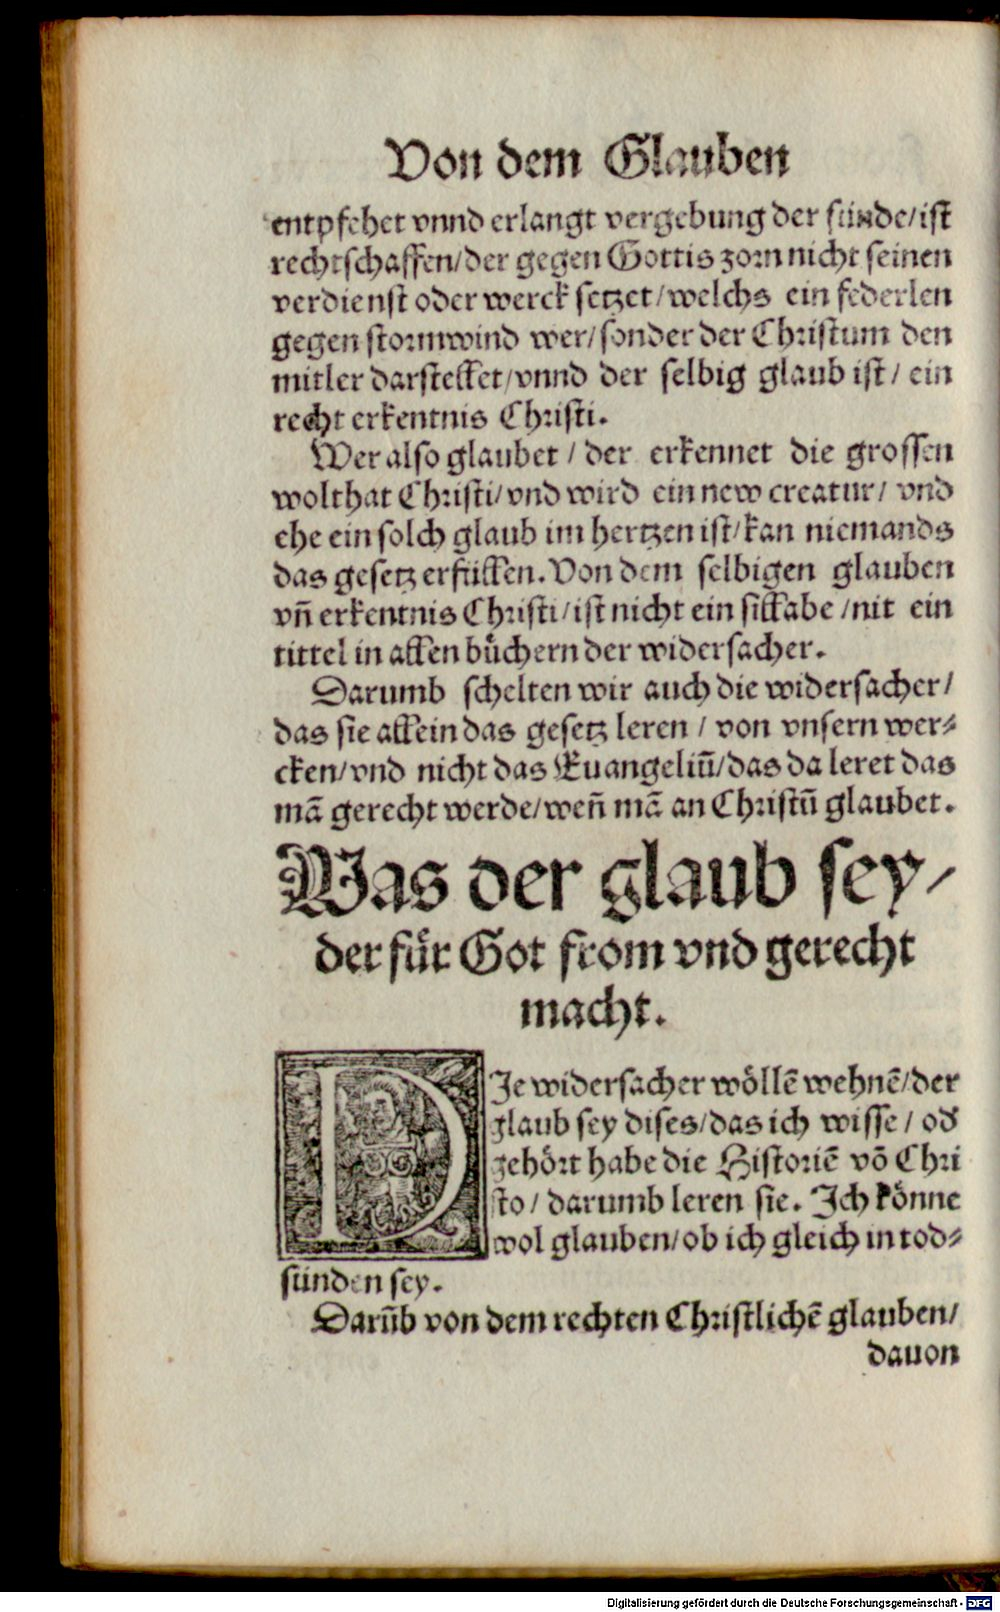 Von dem Glauben
entpfehet vnnd erlangt vergebung der sünde/ist
rechtschaffen/der gegen Gottis zorn nicht seinen
verdienst oder werck setzet/welchs ein federlen
gegen stormwind wer/sonder der Christum den
mitler darstellet/vnnd der selbig glaub ist/ ein
recht erkentnis Christi.
Wer also glaubet / der erkennet die grossen
wolthat Christi/vnd wird ein new creatur/ vnd
ehe ein solch glaub im hertzen ist/kan niemands
das gesetz erfüllen. Von dem selbigen glauben
vñ erkentnis Christi/ist nicht ein sillabe /nit ein
tittel in allen bůchern der widersacher.
Darumb schelten wir auch die widersacher/
das sie allein das gesetz leren / von vnsern wer-
cken/vnd nicht das Euangeliū/das da leret das
mā gerecht werde/weñ mā an Christū glaubet.
Was der glaub sey/
der für Got from vnd gerecht
macht.
DJe widersacher wöllē wehnē/der
glaub sey dises/das ich wisse / oď
gehört habe die Historiē vō Chri
sto / darumb leren sie. Jch könne
wol glauben/ob ich gleich in tod-
sünden sey.
Darūb von dem rechten Christlichē glauben/
dauon
Digitalisierung gefördert durch die Deutsche Forschungsgemeinschaft - DFG